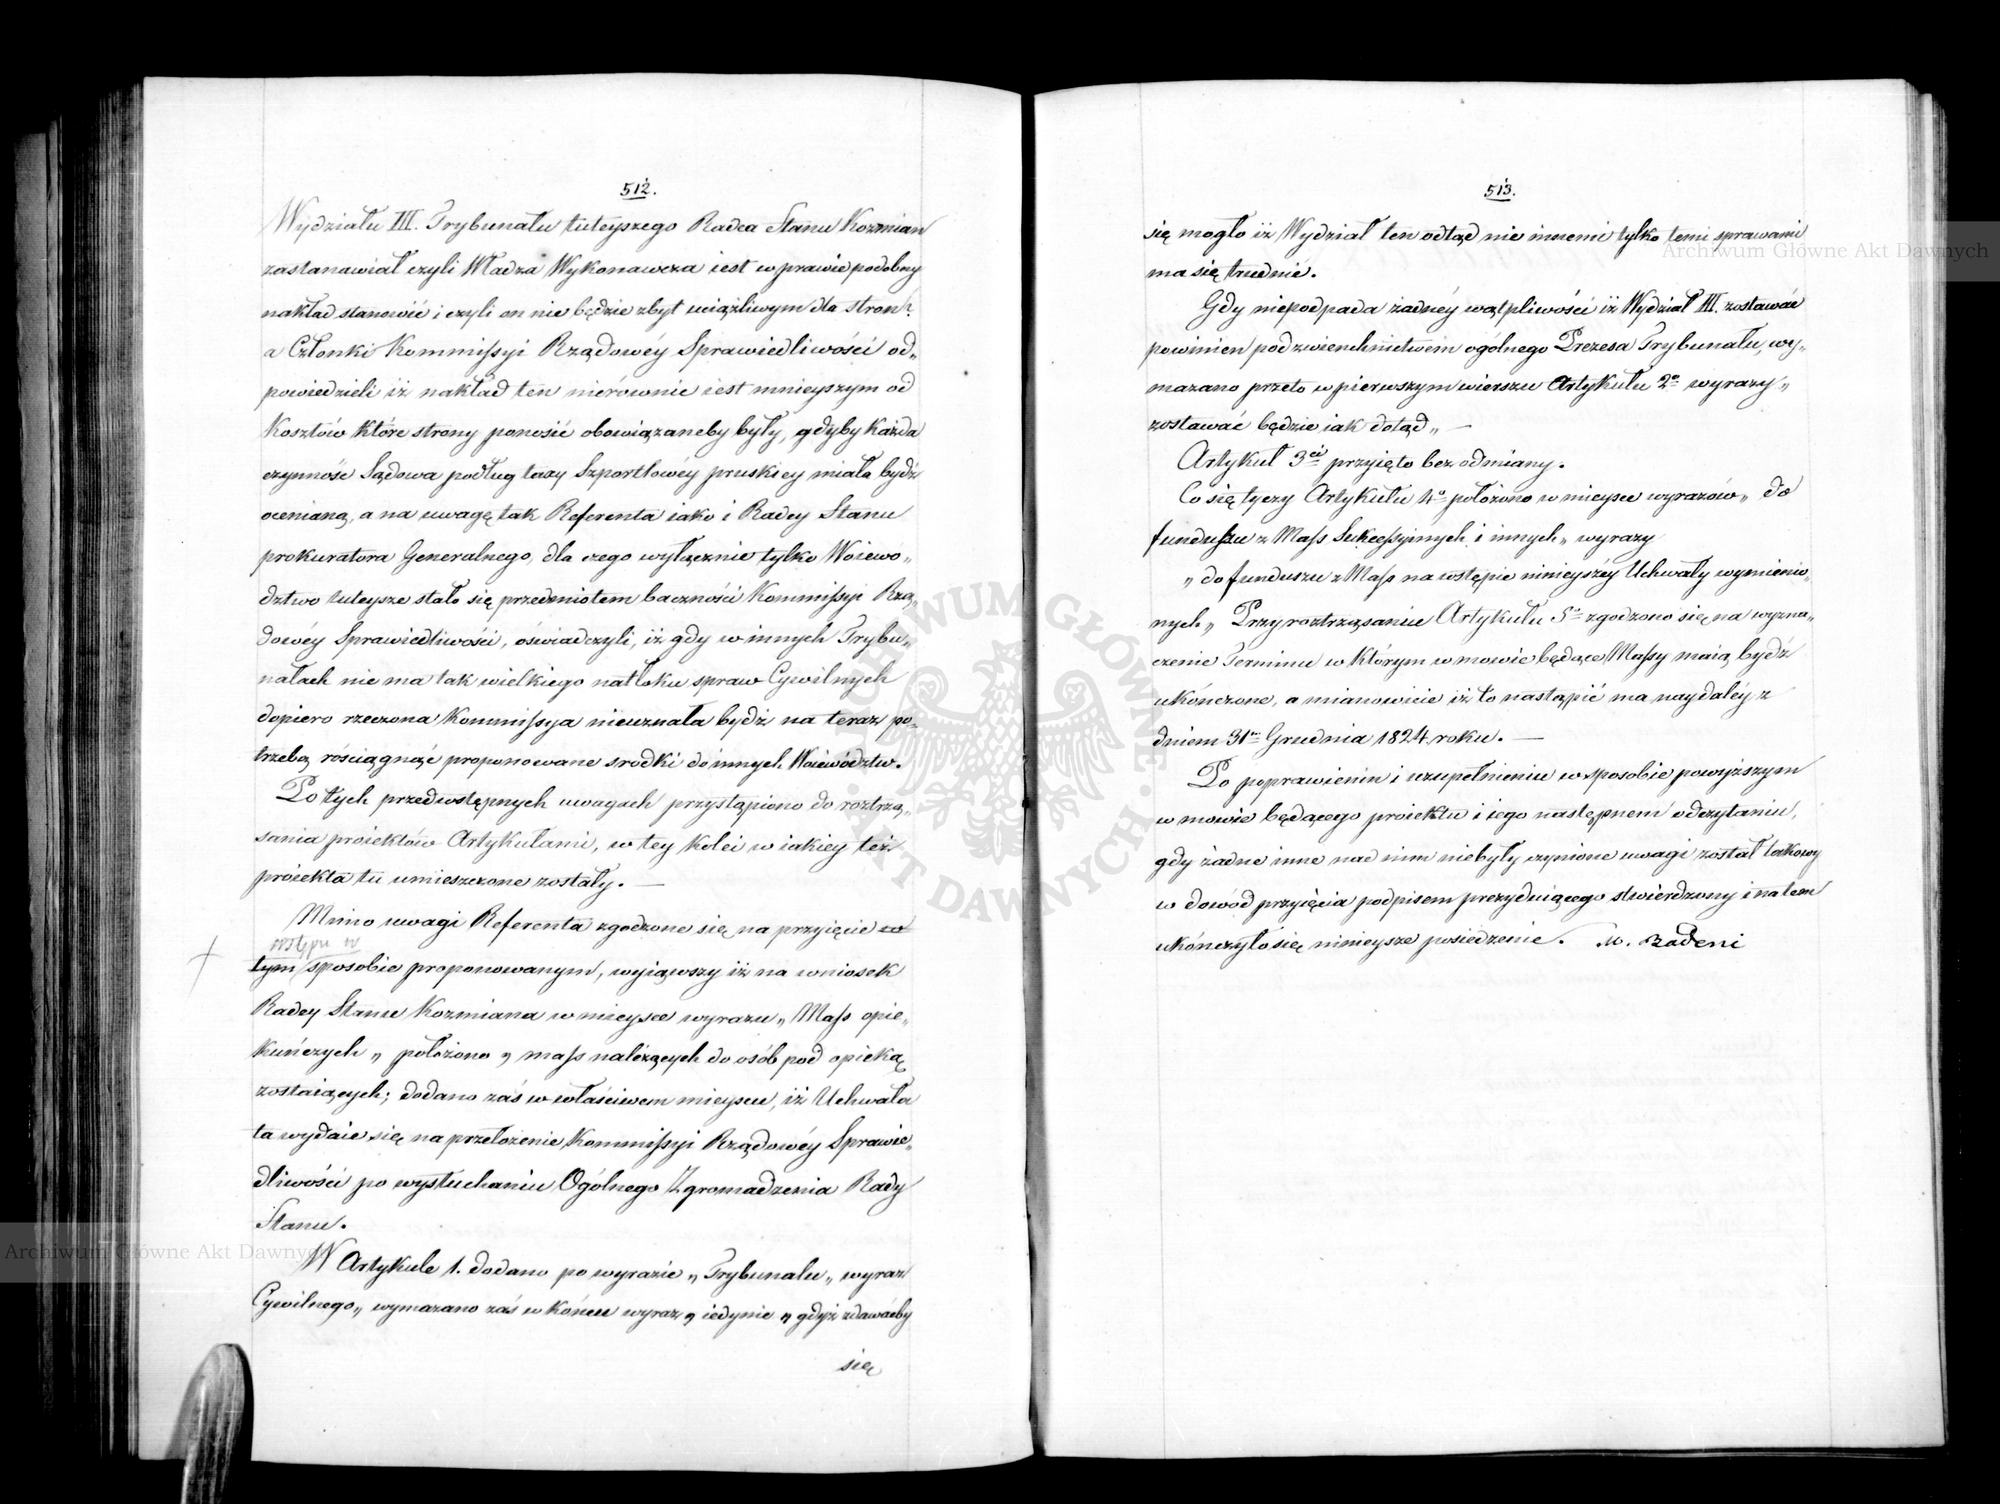 512.
Wydziału III. Trybunału tuteyszego Radca Stanu Kozmian
zastanawiał czyli Władza Wykonawcza iest w prawie podobny
nakład stanowić i czyli on nie będzie zbyt uciążliwym dla stron?
a Członki Kommissyi Rządowéy Sprawiedliwości od„
powiedzieli iż nakład ten nierównie iest mnieyszym od
Kosztów które strony ponosić obowiązaneby były, gdyby każda
czynność Sądowa podług taxy Szportlowéy pruskiey miała bydź
ocenianą, a na uwagę tak Referenta iako i Radcy Stanu
prokuratora Generalnego, dla czego wyłącznie tylko Woiewó„
dztwo tuteysze stało się przedmiotem baczności Kommissyi Rzą„
dowéy Sprawiedliwości, oświadczyli, iż gdy w innych Trybu„
nałach nie ma tak wielkiego natłoku spraw Cywilnych
dopiero rzeczona Kommissya nieuznała bydź na teraz po„
trzebą rościągnąć proponowane srodki do innych Woiewództw.
Po tych przedwstępnych uwagach przystąpiono do roztrzą„
sania proiektów Artykułami, w tey kolei w iakiey też
proiekta tu umieszczone zostały. —
Mimo uwagi Referenta zgodzono się na przyięcie w
wstępu w
tym sposobie proponowanym, wyiąwszy iż na wniosek
Radcy Stanu Kozmiana w mieysce wyrazu „ Mass opie„
kuńczych „ położono „ mass należących do osób pod opieką
zostaiących; dodano zaś w właściwem mieyscu, iż Uchwała
ta wydaie się na przełożenie Kommissyi Rządowéy Sprawie„
dliwości po wysłuchaniu Ogólnego Zgromadzenia Rady
Stanu.
W Artykule 1. dodano po wyrazie „ Trybunału „ wyraz
Cywilnego„ wymazano zaś w końcu wyraz „ iedynie „ gdyż zdawaćby
się
513.
się mogło iż Wydział ten odtąd nie innemi tylko temi sprawami
ma się trudnić.
Gdy niepodpada żadnéy wątpliwości iż Wydział III. zostawać
powinien pod zwierchnictwem ogólnego Prezesa Trybunału, wy„
mazano przeto w pierwszym wierszu Artykułu 2º wyrazy „
zostawać będzie iak dotąd „ —
Artykuł 3ci przyięto bez odmiany.
Co się tyczy Artykułu 4º położono w mieysce wyrazów „ do
funduszu z Mass Sukcessyinych i innych „ wyrazy
„ do funduszu z Mass na wstępie ninieyszéy Uchwały wymienio„
nych „ Przy roztrząsaniu Artykułu 5º zgodzono się na wyzna„
czenie Terminu w którym w mowie będące Massy maią bydź
ukończone, a mianowicie iż to nastąpić ma naydaléy z
dniem 31m Grudnia 1824 roku. —
Po poprawieniu i uzupełnieniu w sposobie powyższym
w mowie będącego proiektu i iego następnem odczytaniu,
gdy żadne inne nad nim niebyły czynione uwagi został takowy
w dowód przyięcia podpisem prezyduiącego stwierdzony i na tem
ukończyło się ninieysze posiedzenie. M. Badeni
Archiwum Główne Akt Dawnych
Archiwum Główne Akt Dawnych
ARCHIWUM GŁÓWNE AKT DAWNYCH